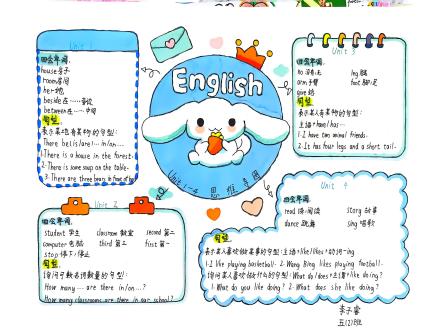 Unit 1
四会单词.
house 房子
room 房间
her 她的
beside 在……旁边
between 在……中间
句型.
表示某地有某物的句型:
There be(is/are)... in/on...
1. There is a house in the forest.
2. There is some soup on the table.
3. There are three bears in front of her
English
Unit 1-4 思维导图
Unit 3
四会单词.
no 没有,无
leg 腿
arm 手臂
foot 脚;足
give 给
句型
表示某人有某物的句型:
主语+have/has...
1. I have two animal friends.
2. It has four legs and a short tail.
Unit 2
四会单词.
student 学生
classroom 教室
second 第二
computer 电脑
third 第三
first 第一
stop 停下;停止
句型
询问可数名词数量的句型:
How many ... are there in/on...?
How many classrooms are there in our school?
Unit 4
四会单词.
read 读;阅读
story 故事
dance 跳舞
sing 唱歌
句型
表示某人喜欢做某事的句型:主语+like/likes+动词-ing
1. I like playing basketball. 2. Wang Bing likes playing football.
询问某人喜欢做什么的句型: What do/does+主语+like doing?
1. What do you like doing? 2. What does she like doing?
五(2)班